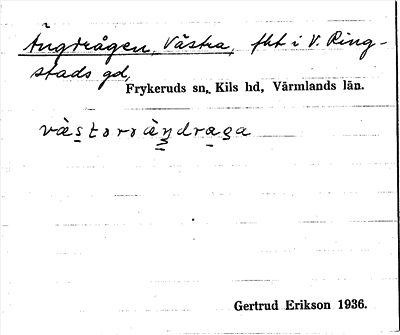 Ängdrågen, Västra, fht i V. Ring-
stads gd,
Frykeruds sn, Kils hd, Värmlands län.
Gertrud Erikson 1936.